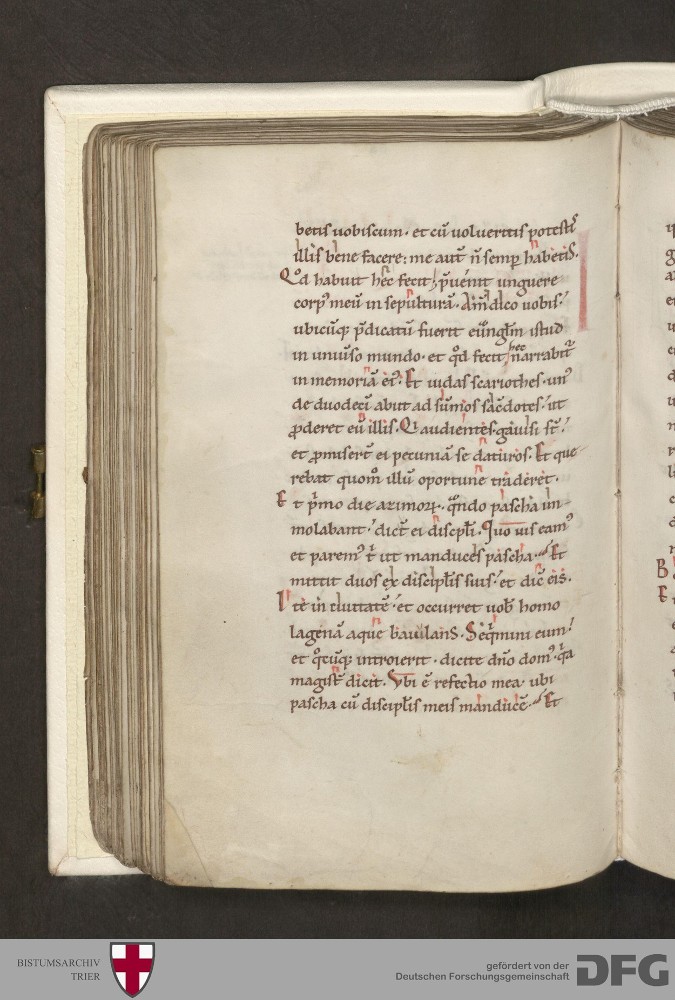 betis uobiscum· et cū uolueritis potestis
illis bene facere: me aut̄ n̄ semp habetis.
Qd̄ habuit hęc fecit; p̄uenit unguere
corp᷒ meū in sepulturā. Am̄ dico uobis:
ubicūq; p̄dicatū fuerit euu̅gl̄m istud
in uniu̅so mundo· et qd̄ fecit hec narrabit᷑
in memoriā ei᷒. Et iudas scariothes· un᷒
de duodecī abiit ad sūmos sac̄dotes: ut
ꝓderet eū illis. Qi audientes· gauisi st̄:
et ꝓmiser̄t ei pecuniā se daturos. Et que
rebat quom̄ illū oportune traderet·
Et p̄mo die azimoꝝ· qn̄do pascha im
molabant: dic̄t ei discipl̄i. Quo uis eam᷒
et parem᷒ t̄ ut manduces pascha· Et
mittit duos ex discipl̄is suis: et dic̄ eis.
Ite in ciuitatē: et occurret uob̄ homo
lagenā aquę baiulans. Seq̄mini eum:
et qͦcūq; introierit· dicite dn̄o dom᷒· qa
magist̄ dicit. Vbi ē refectio mea· ubi
pascha cū discipl̄is meis manducē· Et
B
E
BISTUMSARCHIV
TRIER
gefördert von der
Deutschen Forschungsgemeinschaft
DFG